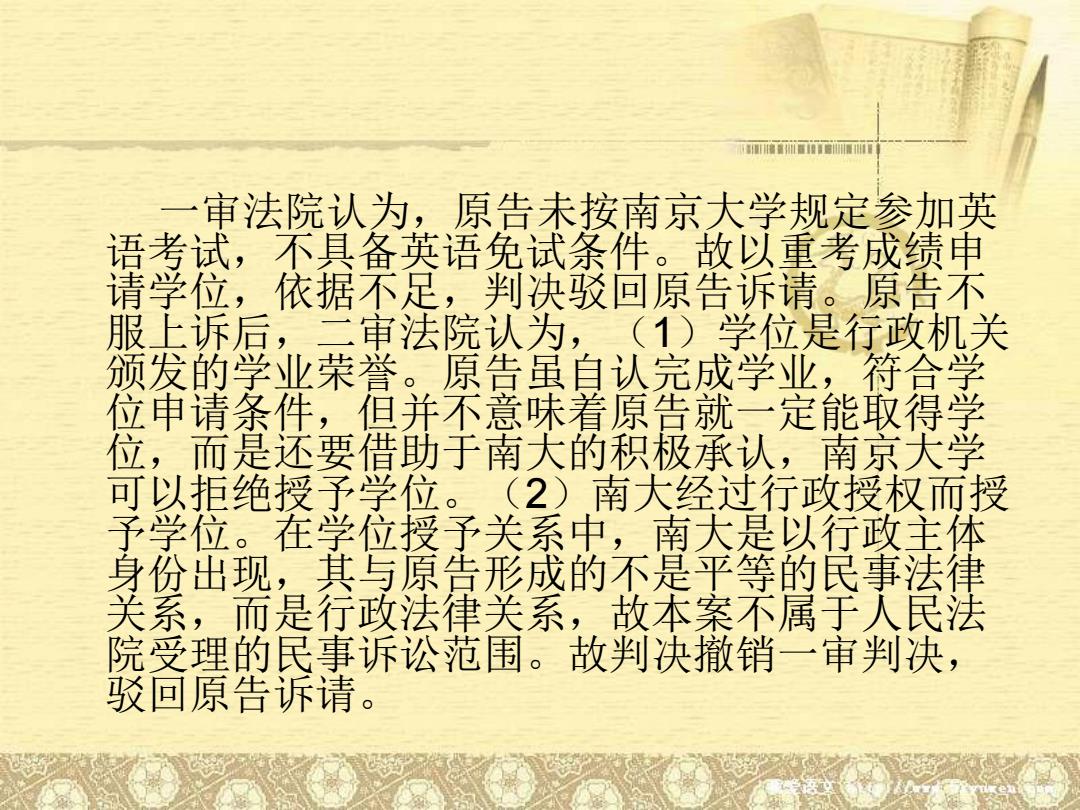 一审法院认为，原告未按南京大学规定参加英
语考试，不具备英语免试条件。故以重考成绩申
请学位，依据不足，判决驳回原告诉请。原告不
服上诉后，二审法院认为，（1）学位是行政机关
颁发的学业荣誉。原告虽自认完成学业，符合学
位申请条件，但并不意味着原告就一定能取得学
位，而是还要借助于南大的积极承认，南京大学
可以拒绝授予学位。（2）南大经过行政授权而授
予学位。在学位授予关系中，南大是以行政主体
身份出现，其与原告形成的不是平等的民事法律
关系，而是行政法律关系，故本案不属于人民法
院受理的民事诉讼范围。故判决撤销一审判决，
驳回原告诉请。